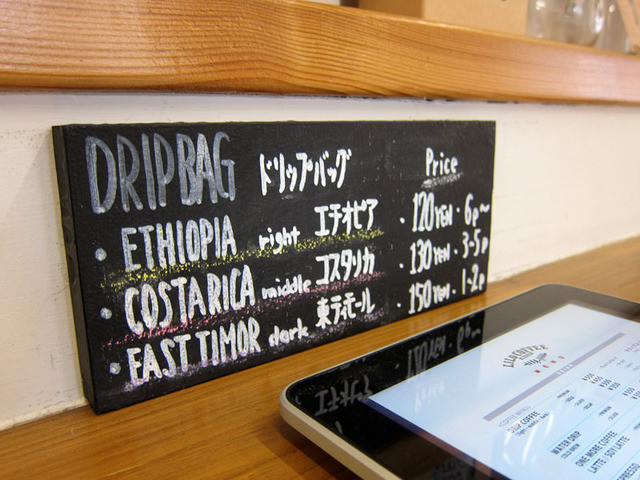 DRIPBAG ドリップバッグ Price
· ETHIOPIA right エチオピア · 120YEN · 6p~
· COSTARICA middle コスタリカ · 130YEN · 3-5p
· EAST TIMOR dark 東ティモール · 150YEN · 1-2p
COFFEE
WATER DRIP
ONE MORE COFFEE
LATTE / SOY LATTE